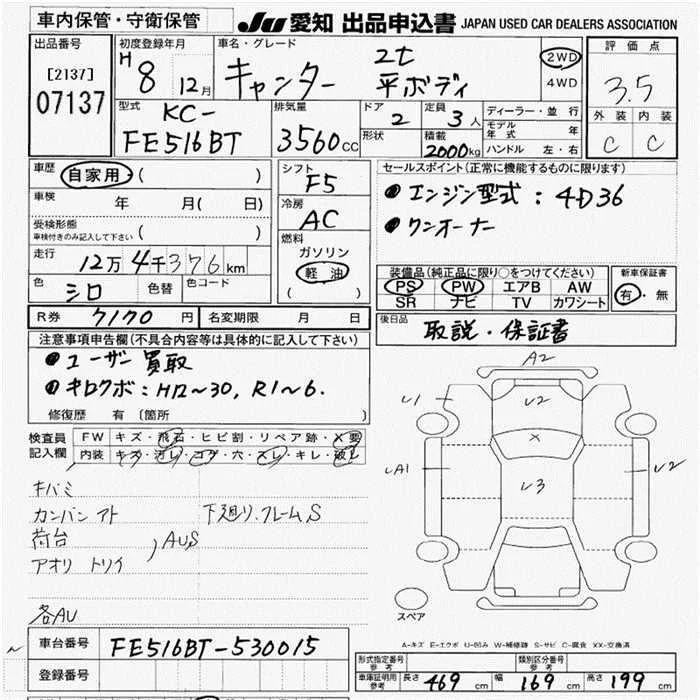 車内保管・守衛保管
JU 愛知 出品申込書 JAPAN USED CAR DEALERS ASSOCIATION
出品番号
[2137]
07137
初度登録年月
H 8 12月
車名・グレード
キャンター 2t 平ボディ
2WD
4WD
評価点
3.5
外装 内装
C C
型式
KC-
FE516BT
排気量
3560cc
ドア
2
形状
定員
3人
積載
2000kg
ディーラー・並行
モデル年式 年
ハンドル 左・右
車歴
自家用・( )
車検 年 月( 日)
受検形態
車検付きのみ記入して下さい ( )
走行
12万4千376km
色
シロ
色替
色コード
シフト
F5
冷房
AC
燃料
ガソリン
軽油
( )
セールスポイント(正常に機能するものに限ります)
● エンジン型式:4D36
● ワンオーナー
装備品(純正品に限り○をつけてください)
PS PW エアB AW
SR ナビ TV カワシート
新車保証書
有・無
R券 7170円
名変期限 月 日
後日品
取説・保証書
注意事項申告欄(不具合内容等は具体的に記入して下さい)
● ユーザー買取
● キロクボ:H12~30, R1~6.
修復歴 有 (箇所 )
検査員記入欄
FW キズ・飛石・ヒビ割・リペア跡・X要
内装 キズ・汚レ・コゲ・穴・スレ・キレ・破レ
キバミ
カンバンアト 下廻り、フレームS
荷台
アオリ トリイ ) AUS
各AU
A2
U1
U2
X
UA1
U3
U2
スペア
A-キズ E-エクボ U-凹み W-補修跡 S-サビ C-腐食 XX-交換済
車台番号 FE516BT-530015
登録番号
形式指定番号 参考
類別区分番号 参考
車庫証明用参考 長さ 469cm 幅 169cm 高さ 199cm